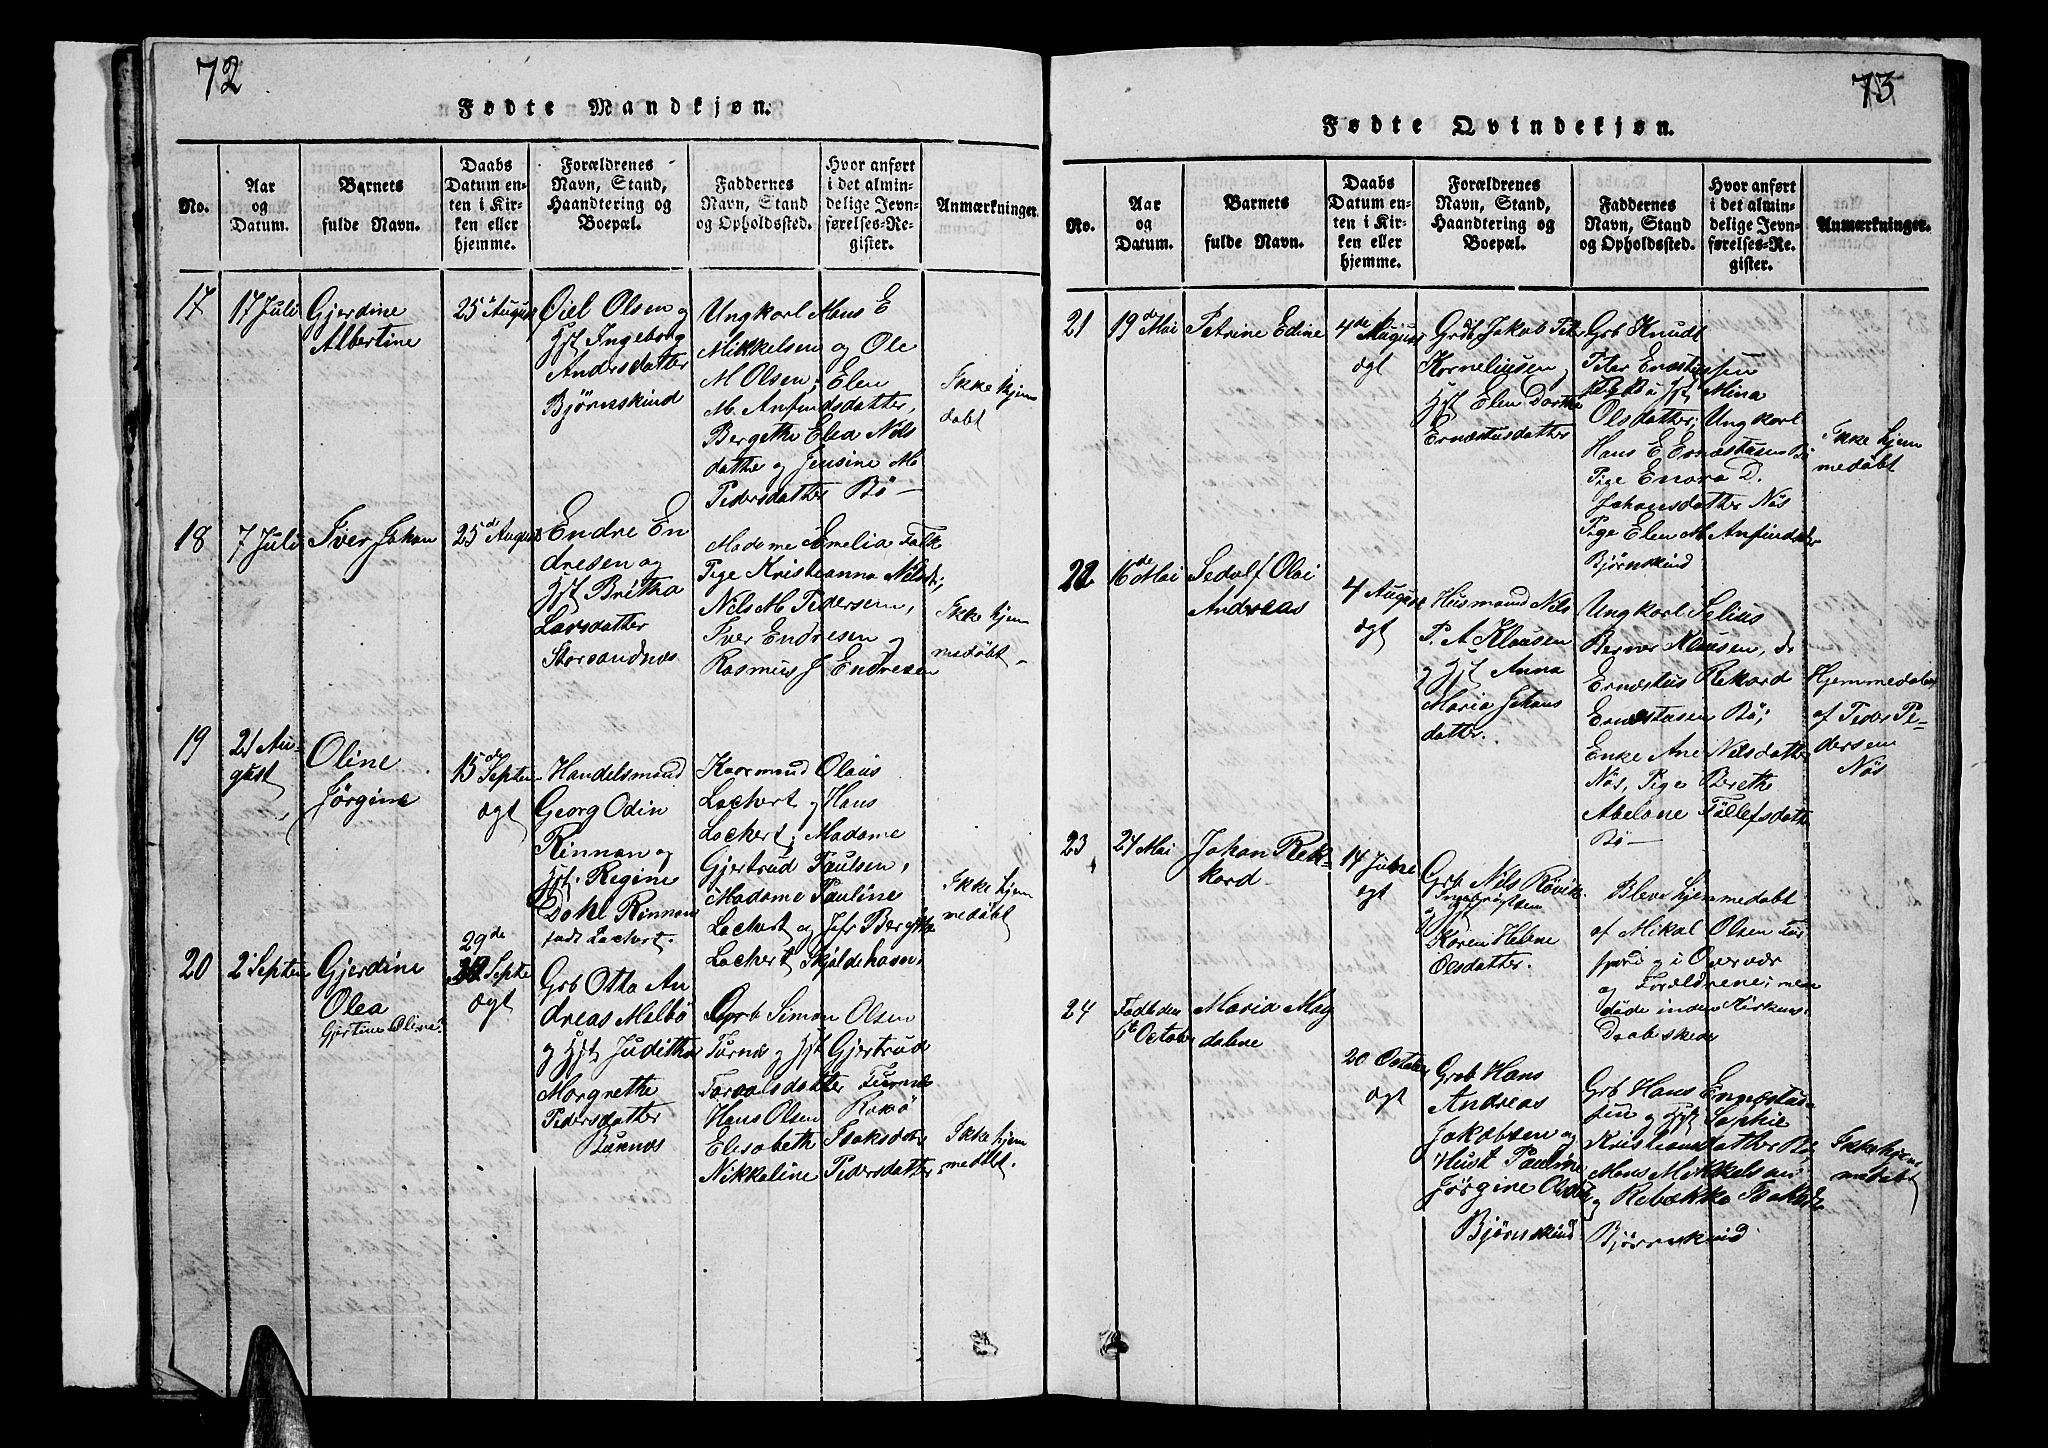 72
Fødte Mandkjøn.
No.
Aar
og
Datum.
Barnets
fulde Navn.
Daabs
Datum en-
ten i Kir-
ken eller
hjemme.
Forældrenes
Navn, Stand,
Haandtering og
Boepæl.
Faddernes
Navn, Stand
og Opholdssted.
Hvor anført
i det almin-
delige Jevn-
førelses-Re-
gister.
Anmærkninger.
17
17 Juli
Gjerdine
Albertine
25 August
Olsen og
Hst Ingeborg
Andersdatter
Bjørnskind
Ungkarl Hans E
Mikkelsen og Ole
M Olsen; Elen
M. Anfindsdatter,
Bergethe Elea Nels
datter og Jensine M
Pedersdatter Bö –
Ikke hjem
döbt
18
7 Juli
Iver Johan
25de August
Endre En
dresen og
Hst Britha
Larsdatter
Storsandnes
Madame Amelia Falk
Pige Kristianna Nilsdt;
Nils M Pedersen,
Iver Endresen og
Rasmus J Endresen
Ikke hjem
medöbt –
19
21 Au-
gust
Oline
Jörgine
15de Septem
ægt
Handelsmand
Georg Odin
Rinnan og
Hst. Regine
Dahl Rinnan
født Lockert.
Kaarmand Olaus
Lockert og Hans
Lockert, Madame
Gjertrud Paulsen,
Madame Pauline
Lockert og Jfr Bergitte
Lockert Skjoldehavn
Ikke hjem
medöbt
20
2 Septem
Gjerdine
Olea
Gjertine Oline
29de
Septe
ægt
Grb Otto An
dreas Melbö
og Hst Juditha
Margrethe
Pedersdatter
Buknes
Grb Simon Olsen
Turnes og Hst Gjertrud
Toraalsdatter Turnes
Hans Olsen
Elisabeth Isaksdatr
Nikkoline Pedersdatter
Ikke hjem
medöbt.
73
Fødte Qvindekjøn.
No.
Aar
og
Datum.
Barnets
fulde Navn.
Daabs
Datum en-
ten i Kir-
ken eller
hjemme.
Forældrenes
Navn, Stand,
Haandtering og
Boepæl.
Faddernes
Navn, Stand
og Opholdssted.
Hvor anført
i det almin-
delige Jevn-
førelses-Re-
gister.
Anmærkninger.
21
19de Mai
Petrine Edine
4de August
ægt
Grdb Jakob Peter
Korneliusen,
Hst Elen Dorthe
Ernæstusdatter
Grb Knudt
Peter Ernæstussen
Hst Mina
Olsdatter; Ungkarl
Hans E Ernæstussen Bö
Pige Enora D.
Johansdatter Nös
Pige Elen M Anfindsdatr
Bjørnskind
Ikke hjem
medöbt
22
16de Mai
Sedolf Olai
Andreas
4 August
ægt
Husmand Nils
P. A Klausen
og Hst Anna
Maria Johans
datter.
Ungkarl Selius
Berner Klausen, do
Ernæstus Rekord
Ernæstussen Bö;
Enke Ane Nilsdatter
Nös, Pige Berethe
Abelone Tollefsdatter
Bö –
Hjemmedöbt
af Peder Pe-
dersen
Nös
23
24 Mai
Johan Rek-
kord
14 Juli
ægt
Grb Nils Rövik
Ingebrigtsen
og Hst
Karen Helene
Olsdatter.
Blev hjemmedøbt
af Mikal Olsen For
fjord og i Overvær
og Forældrene; men
døde inden Kirkens
Daab skede
24
Fødtden
6te October
Maria Mag
dalene
20 October
ægt
Grb Hans
Andreas
Jakobsen og
Hust Pauline
Jörgine Olsdtr
Bjørnskind
Grb Hans Ernæstus-
sen og Hst Sophie
Kristiansdatter Bö
Hans Mikkelsen
og Rebækka Isaksdtr
Bjørnskind
Ikke hjem
medöbt